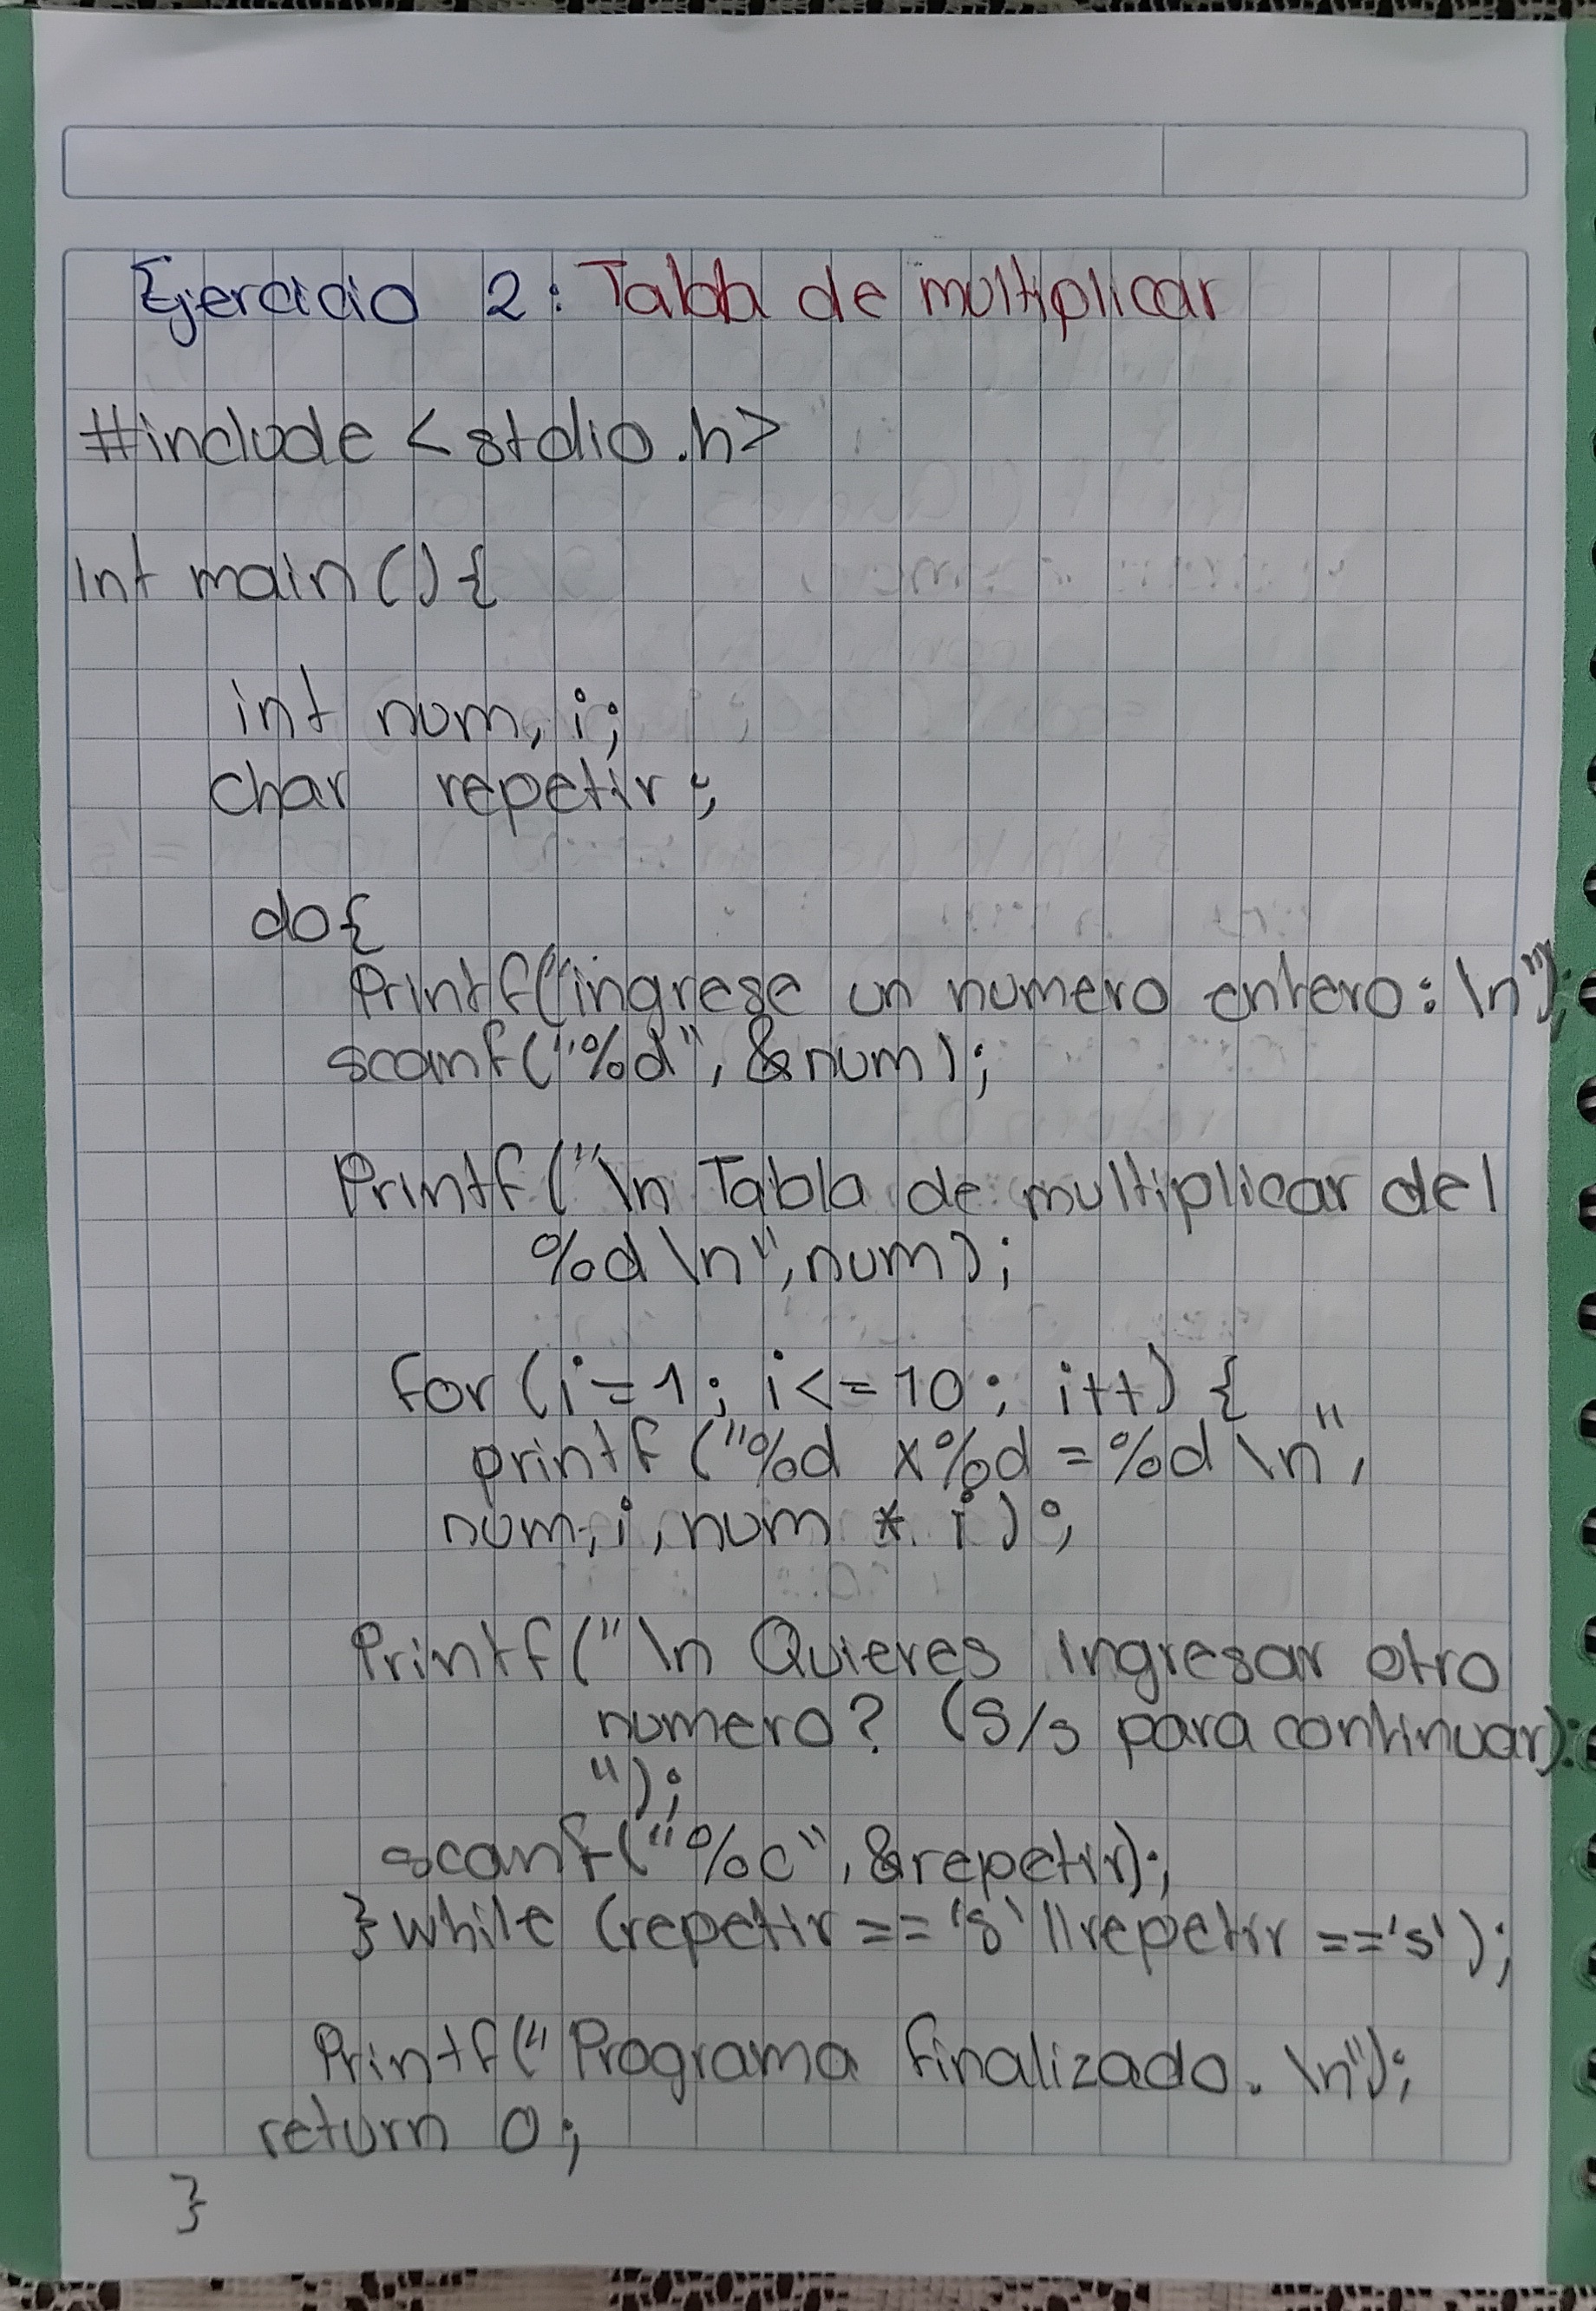 Ejercicio 2: Tabla de multiplicar
#include <stdio.h>
int main(){
int num, i;
char repetir;
do{
Printf("ingrese un numero entero: \n");
scanf("%d", &num);
Printf("\n Tabla de multiplicar del
%d \n", num);
for (i=1; i<=10; i++) {
printf ("%d x %d = %d \n",
num, i, num * i);
Printf("\n Quieres ingresar otro
numero? (S/s para continuar):
");
scanf("%c", &repetir);
} while (repetir == 's' || repetir == 's');
Printf("Programa finalizado. \n");
return 0;
}